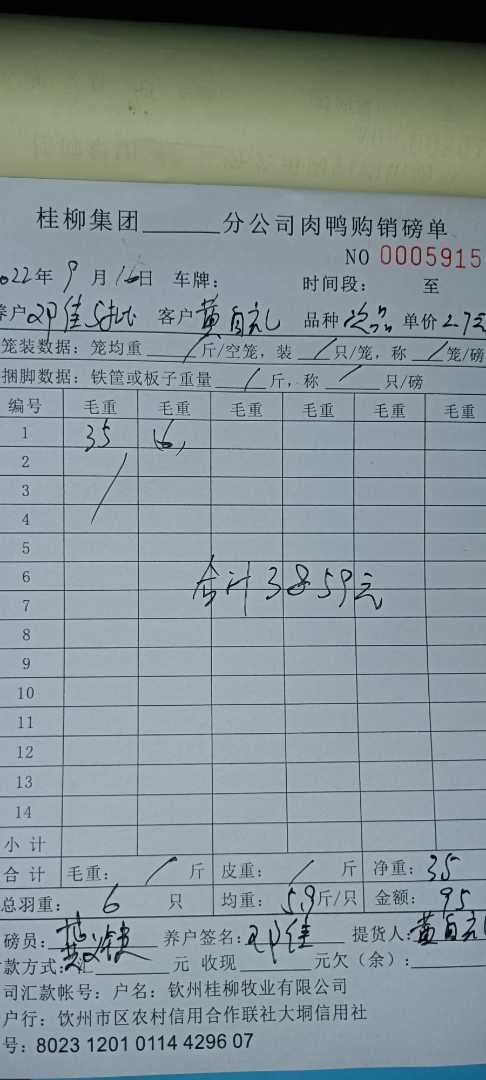 桂柳集团______分公司肉鸭购销磅单
NO 0005915
022年9月16日 车牌: 时间段: 至
养户邓佳 客户黄自礼 品种次品 单价2.7元
笼装数据: 笼均重 / 斤/空笼, 装 / 只/笼, 称 / 笼/磅
捆脚数据: 铁筐或板子重量 / 斤, 称 / 只/磅
编号 毛重 毛重 毛重 毛重 毛重 毛重
1 35 6
2
3
4
5
6
7
合计3859元
8
9
10
11
12
13
14
小计
合计 毛重: / 斤 皮重: / 斤 净重: 35
总羽重: 6 只 均重: 5.9斤/只 金额: 95
磅员: 养户签名: 邓佳 提货人: 黄自礼
款方式: 汇______元 收现______元欠(余):______
司汇款帐号: 户名: 钦州桂柳牧业有限公司
户行: 钦州市区农村信用合作联社大垌信用社
号: 8023 1201 0114 4296 07